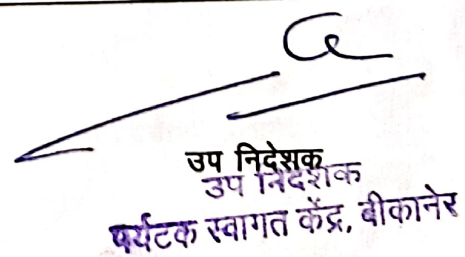 उप निदेशक
उप निदेशक
पर्यटक स्वागत केंद्र, बीकानेर